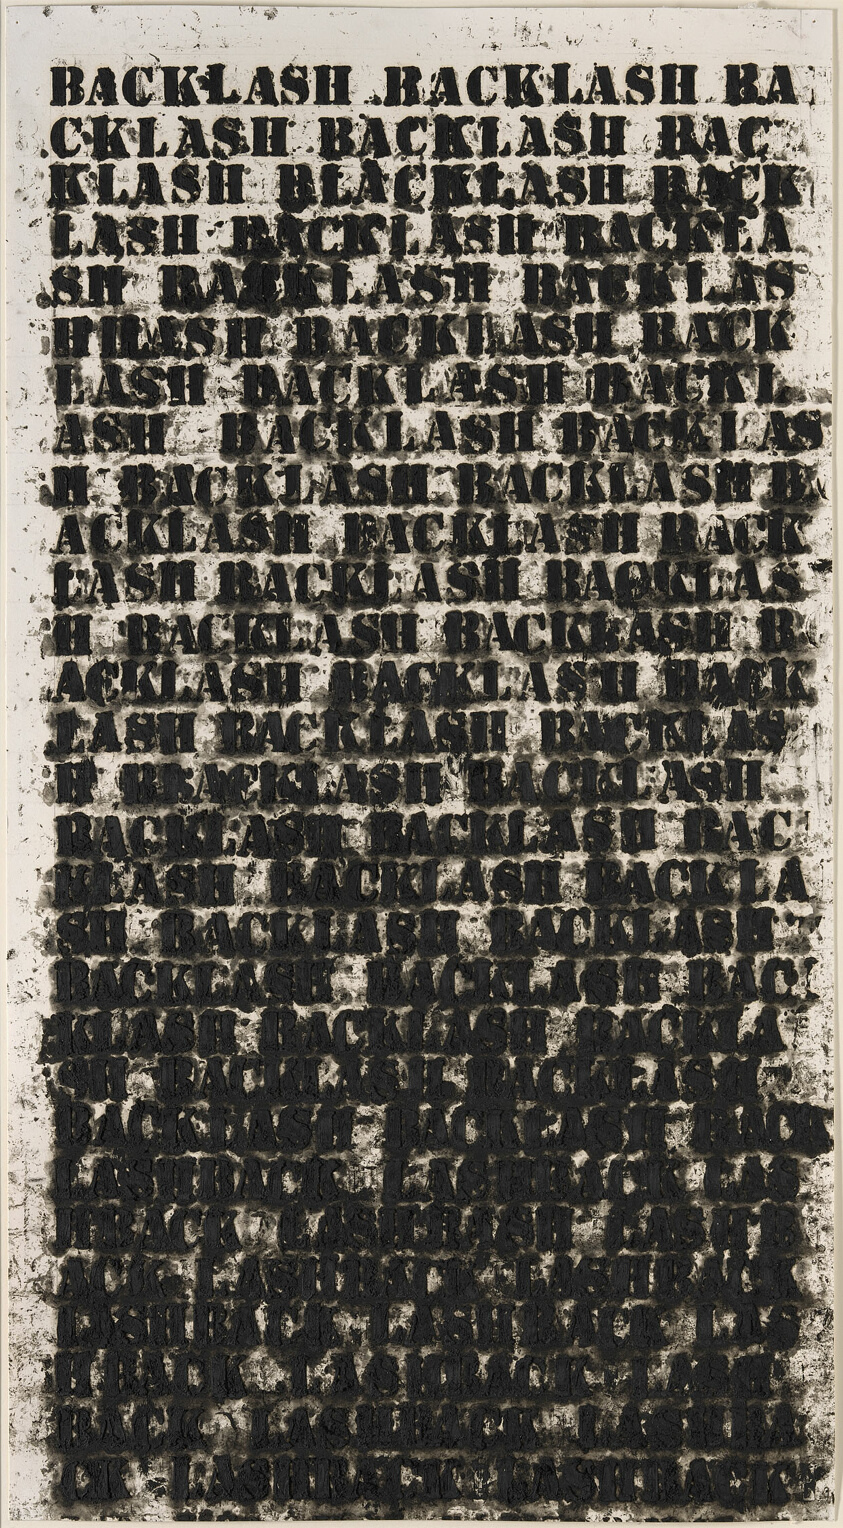 BACKLASH BACKLASH BA
CKLASH BACKLASH BAC
KLASH BLACKLASH BACK
LASH BACKLASH BACKLA
SH BACKLASH BACKLAS
BACKLASH BACK
LASH BACKLASH BACKL
ASH BACKLASH BACKLAS
H BACKLASH BACKLASH B
ACKLASH BACKLASH BACK
LASH BACKLASH BACKLAS
H BACKLASH BACKLASH B
ACKLASH BACKLASH BACK
LASH BACKLASH BACKLAS
H BACKLASH BACKLASH
BACKLASH BACKLASH BAC
KLASH BACKLASH BACKLA
SH BACKLASH BACKLASH
BACKLASH BACKLASH BAC
KLASH BACKLASH BACKLA
SH BACKLASH BACKLASH
BACKLASH BACKLASH BACK
LASHBACK LASHBACK LAS
HBACK LASHB
ACK LASHBACK LASHBACK
LASHBACK LASHBACK LAS
HBACK LASHBACK LASH
BACK LASHBACK LASHBA
CK LASHBACK LASHBACK